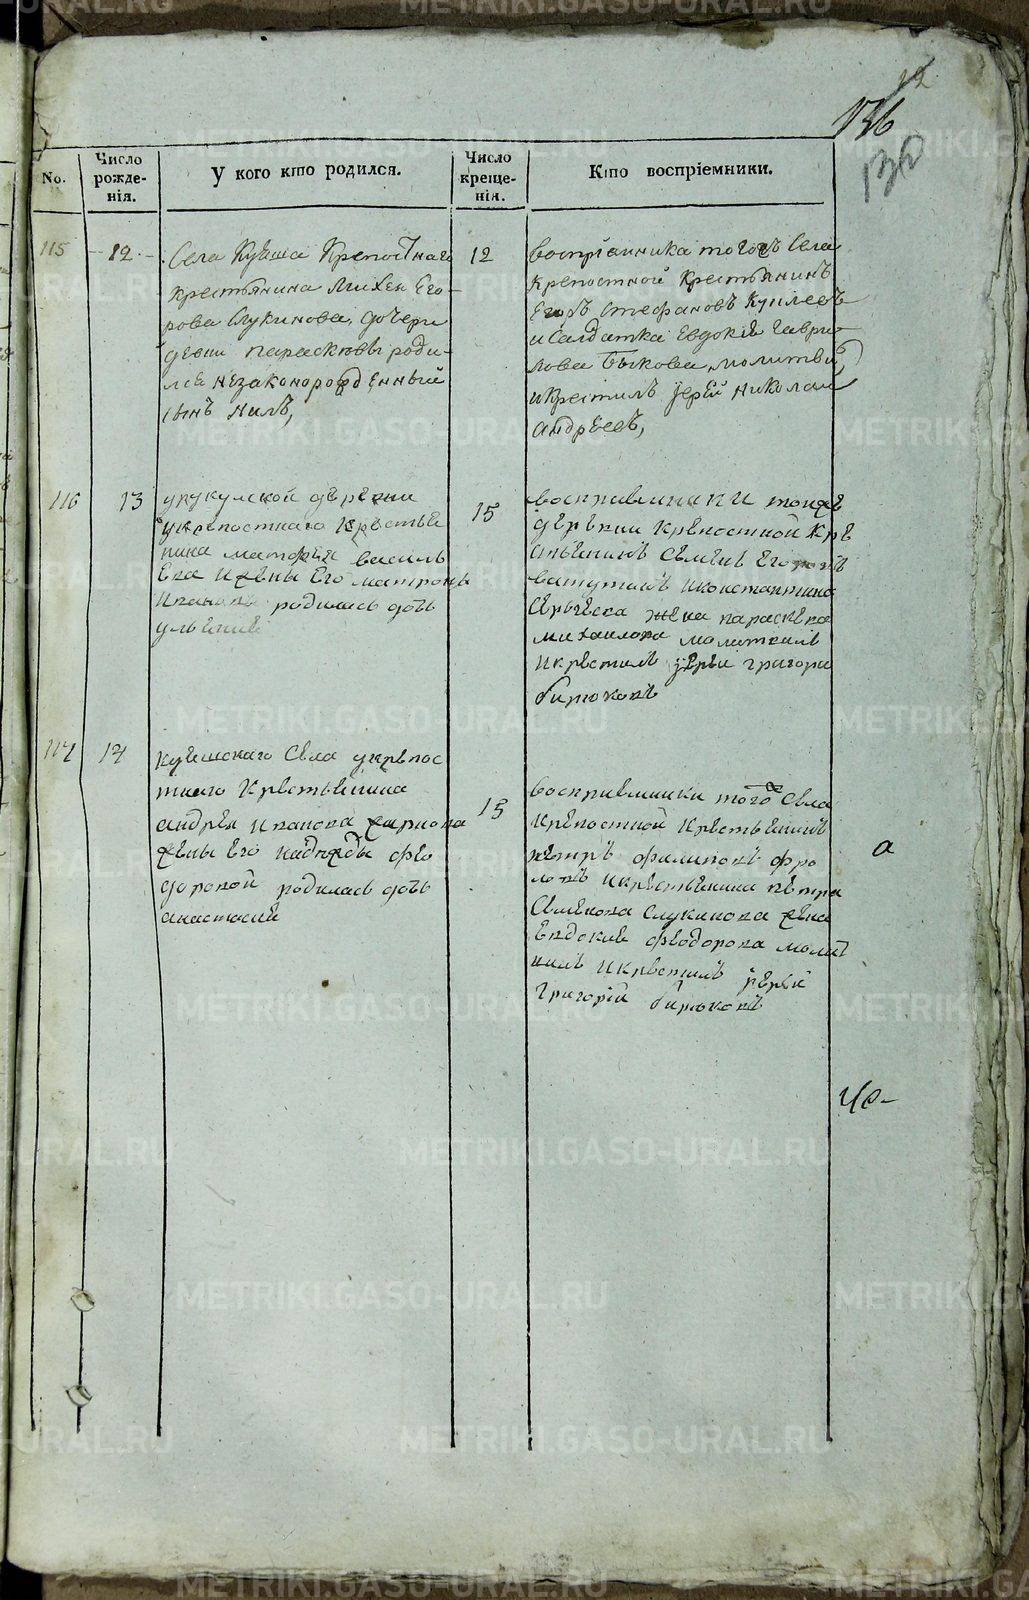 136
130
No.
Число рожде-нія.
У кого кто родился.
Число креще-нія.
Кто воспріемники.
115
12
Села Куяша Крепостнаго
крестьянина Его-
рова Слукинова, дочери
девки парасковьи роди-
лся незаконорожденный
сынъ нилъ,
12
воспріанника тогожъ села
крепостной крестьянинъ
Егоръ Стефановъ
и Салдатка Евдокіѣ Гаври-
лова Быкова, молитвил
и крестилъ Іерей николаи
андреевъ,
116
13
укукулской деревни
укрепостнаго крестья
нина матфея василь
ева ижены его матроны
ивановы родилась дочь
ульяние
15
восприемники тоиже
деревни крепостной кре
стьянинъ семенъ Егоровъ
ватутинъ иконстантина
сергеева жена параскева
михаилова молитвилъ
икрестилъ іереи григори
бирюковъ
117
14
куяшскаго села укрепос
тного крестьянина
андрея иванова
жены его надежды фео
доровой родилась дочь
анастасие
15
восприемники тогоже села
крепостной крестьянинъ
петръ филиповъ фро
ловъ икрестьянина петра
семенова слукинова жена
евдокие феодорова молит
вилъ икрестилъ іерей
григорій бирюковъ
а
METRIKI.GASO-URAL.RU